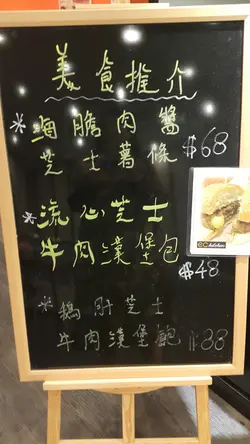 美食推介
*海膽肉醬
芝士薯條 $68
*流心芝士
牛肉漢堡包
$48
*鵝肝芝士
牛肉漢堡飽 $88